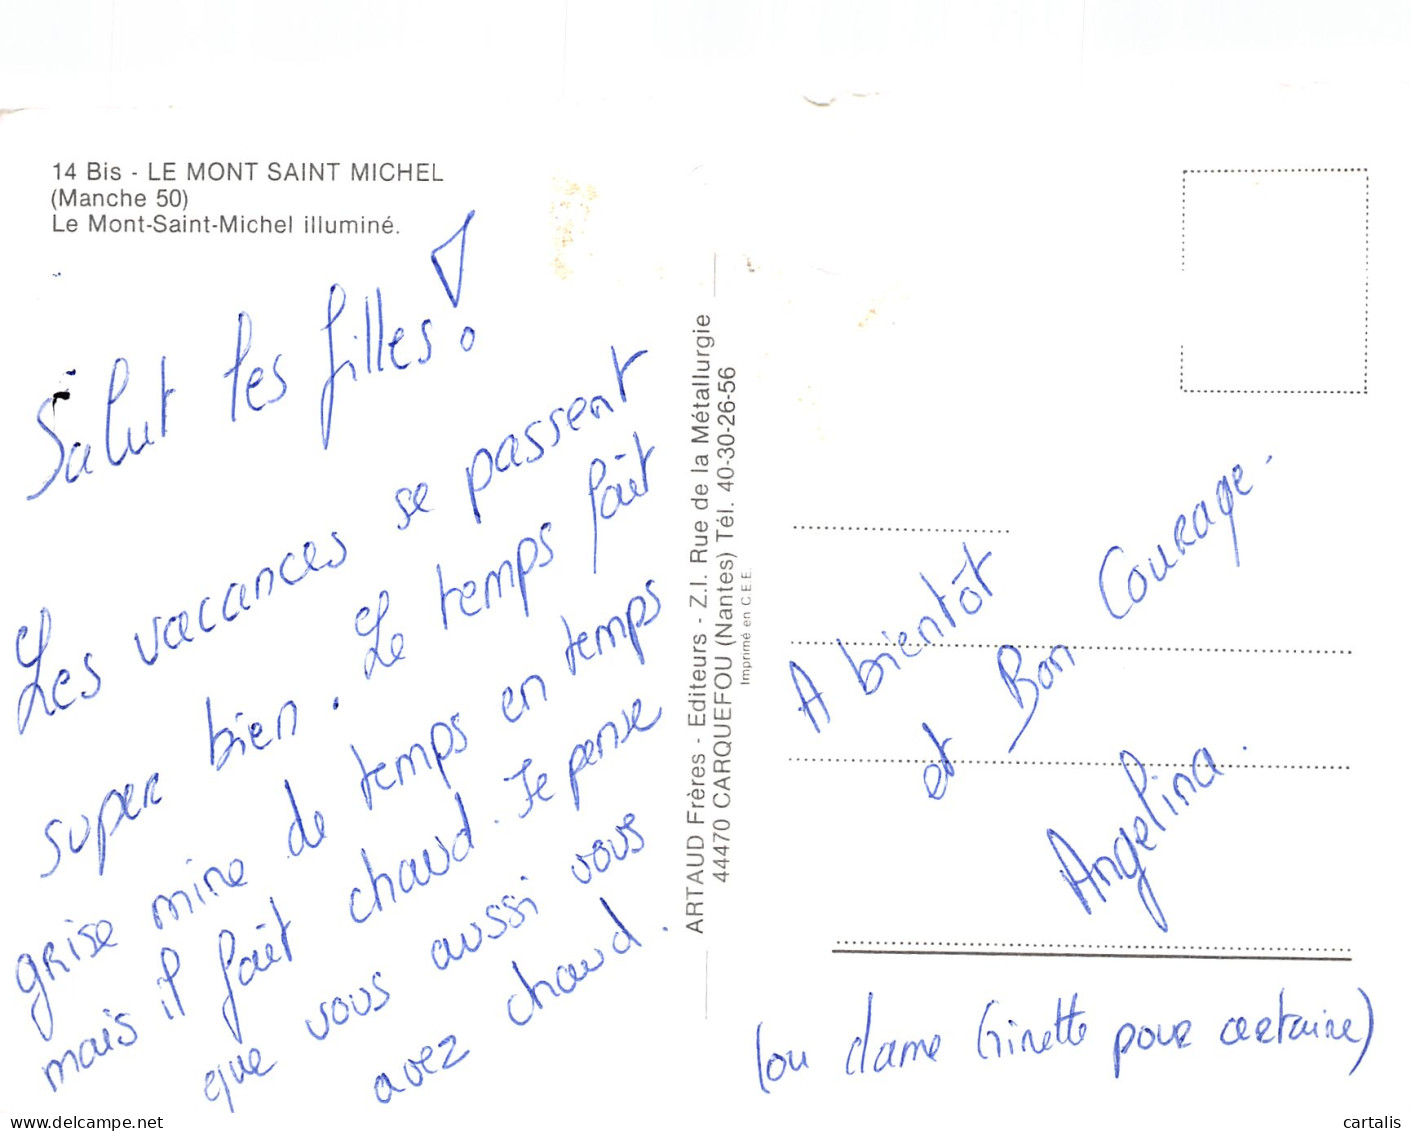 14 Bis - LE MONT SAINT MICHEL
(Manche 50)
Le Mont-Saint-Michel illuminé.
Salut les filles !
Les vacances se passent
super bien. Le temps fait
grise mine de temps en temps
mais il fait chaud. Je pense
que vous aussi vous
avez chaud.
ARTAUD Frères - Editeurs - Z.I. Rue de la Métallurgie
44470 CARQUEFOU (Nantes) Tél. 40-30-26-56
Imprimé en C.E.E.
A bientôt
et Bon Courage.
Angelina.
(ou dame ninette pour certaine)
cartalis
delcampe.net